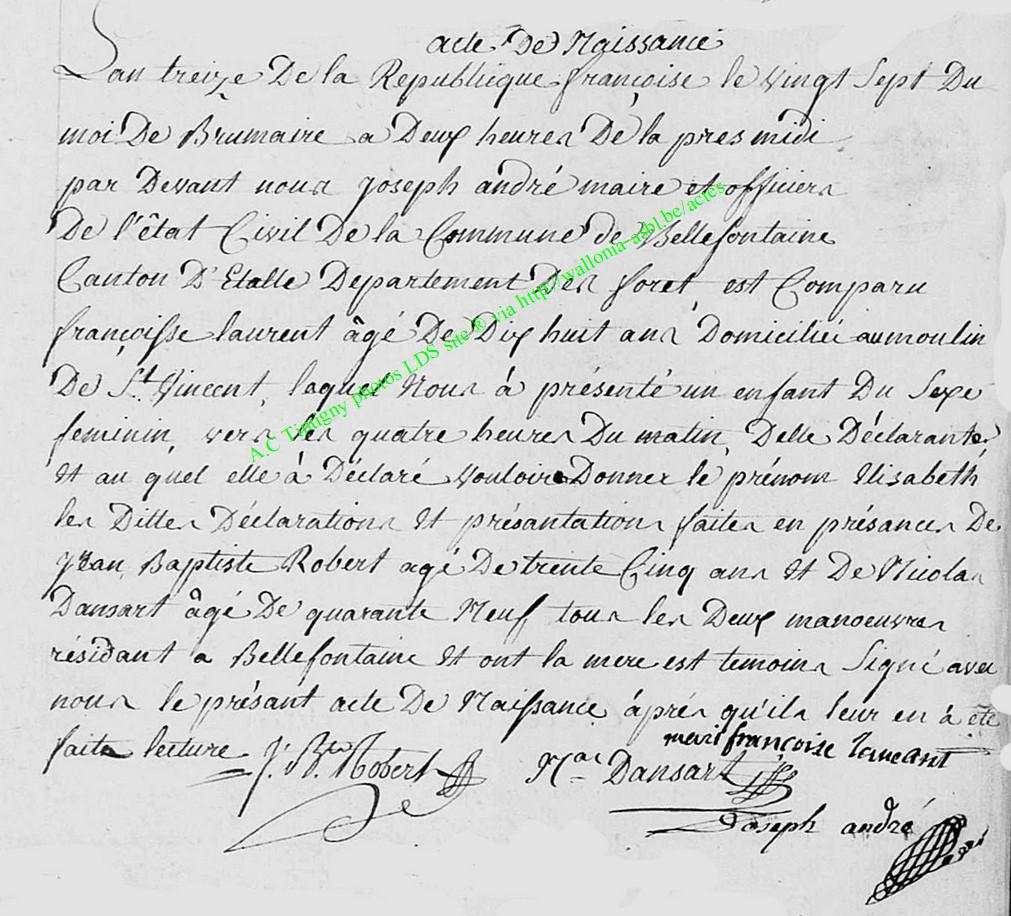 acte de Naissance
Lan treize De la Republique françoise le vingt Sept Du
moi De Brumaire a Deux heures De la pres midi
par Devant nous joseph andré maire et officiers
De l'êtat Civil De la Commune de Bellefontaine
Canton D'Etalle Departement Des foret, est Comparu
françoisse laurent âgé De Dix huit ans Domiciliée au moulin
De St. Vincent, laquel Nous à présenté un enfant Du Sexe
feminin, vers les quatre heures Du matin, Delle Déclarante,
Et au quel elle à Déclaré vouloire Donner le prénom Elisabeth
les Dittes Déclarations Et présantations faites en présances De
jean Baptiste Robert agé De trente Cinq ans Et De Nicolas
Dansart âgé De quarante Neuf tous les Deux manoeuvres
résidant a Bellefontaine Et ont la mere est temoins Signé avec
nous le présant acte De Naissance âprés qu'ils leur en à été
faite lecture mari françoise lament
J. Bte Robert Nas Dansart
Joseph andré
A.C Tintigny photos LDS site ® via http://wallonia-asbl.be/actes